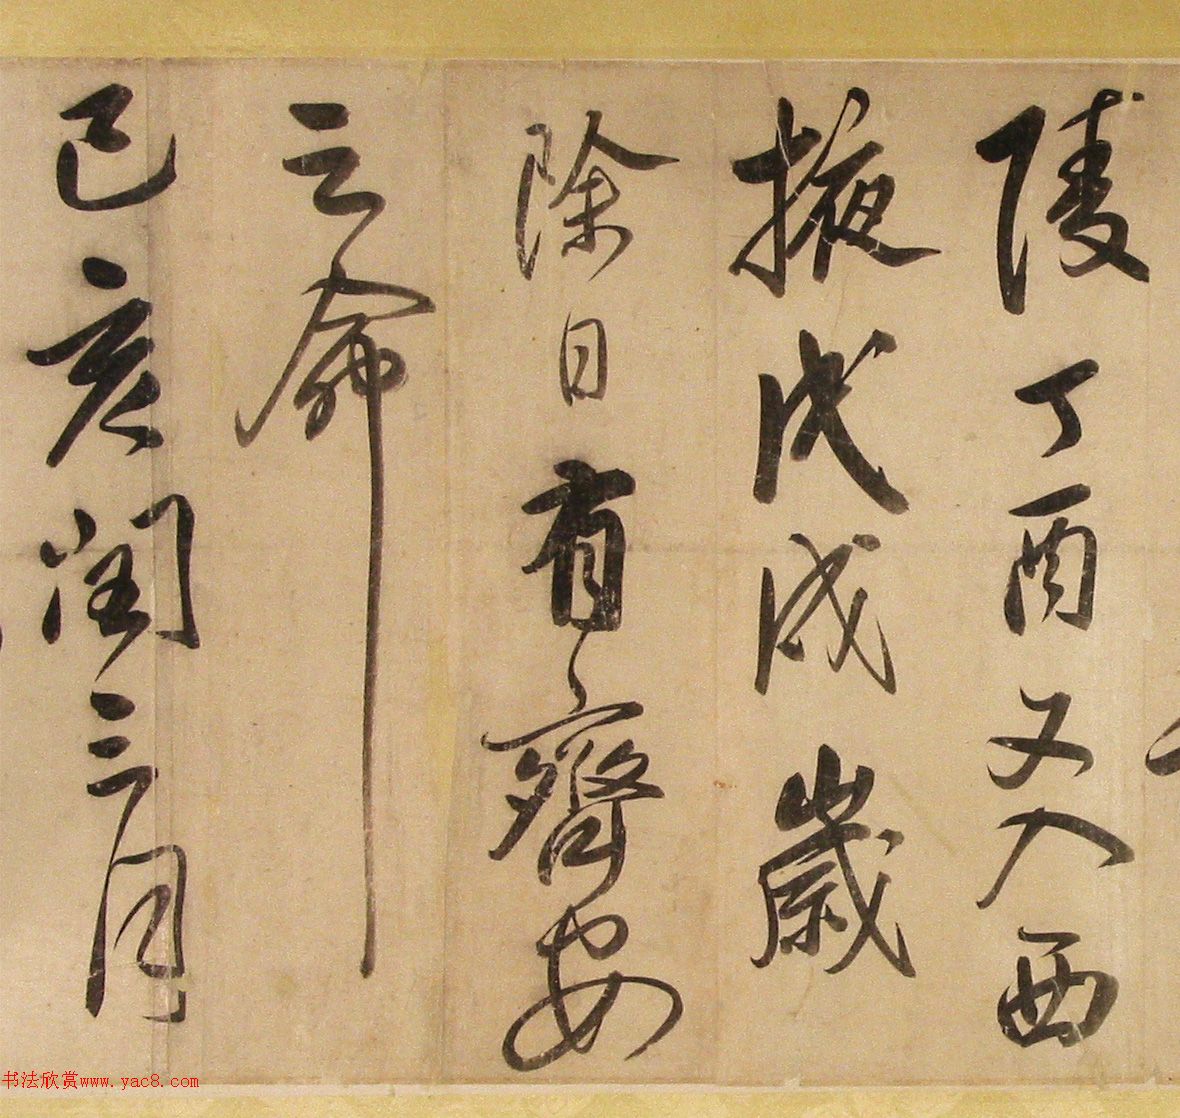 陵丁酉又入西
掖戊戌歲
除日有齊安
之命
己亥閏三月
书法欣赏www.yac8.com